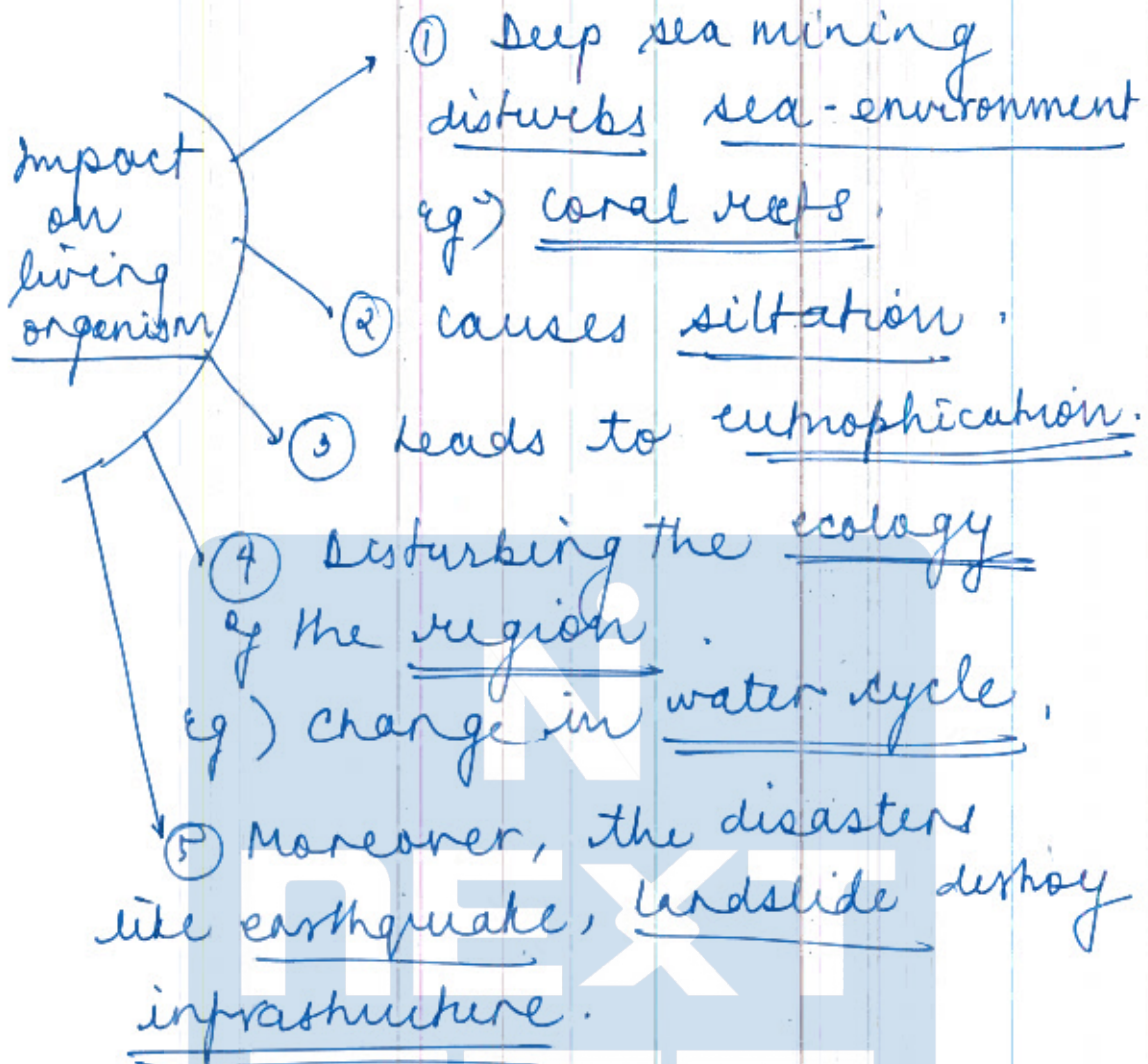 Impact
on
living
organism
① Deep sea mining
disturbs sea-environment
eg) coral reefs.
② causes siltation.
③ Leads to eutrophication.
④ Disturbing the ecology
of the region.
eg) change in water cycle.
⑤ Moreover, the disasters
like earthquake, landslide destroy
infrastructure.
N
NEXT